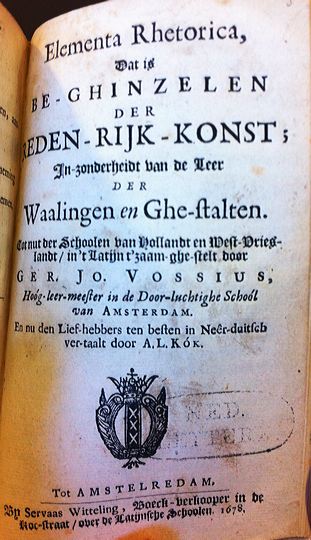 Elementa Rhetorica,
Dat is
BE-GHINZELEN
DER
REDEN-RIJK-KONST;
In-zonderheidt van de Leer
DER
Waalingen en Ghe-stalten.
Tot nut der Schoolen van Hollandt en West-Vries-
landt / in't Latijn t'zaam-ghe-stelt door
GER. JO. VOSSIUS,
Hoóg-leer-meester in de Door-luchtighe Schoól
van AMSTERDAM.
En nu den Lief-hebbers ten besten in Neêr-duitsch
ver-taalt door A. L. KÓK.
NED.
LETTERK
Tot AMSTELREDAM,
By Servaas Witteling, Boeck-verkooper in de
Roc-straat / over de Latijnsche Schoolen. 1678.